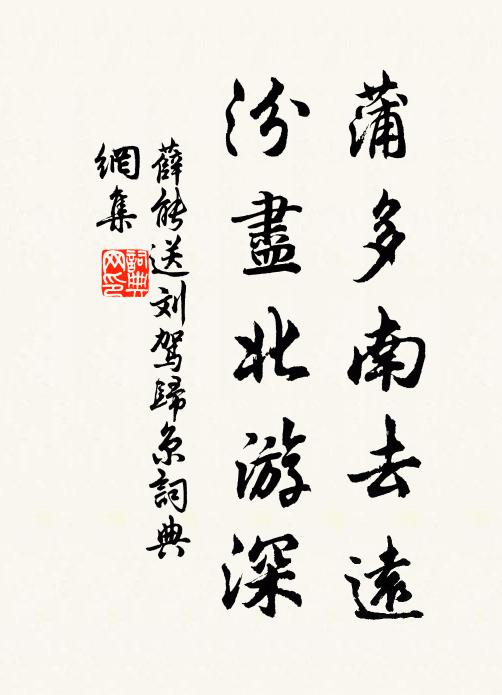 蒲多南去遠
汾盡北游深
薛能送刘駕歸京詞典
網集
詞典网印